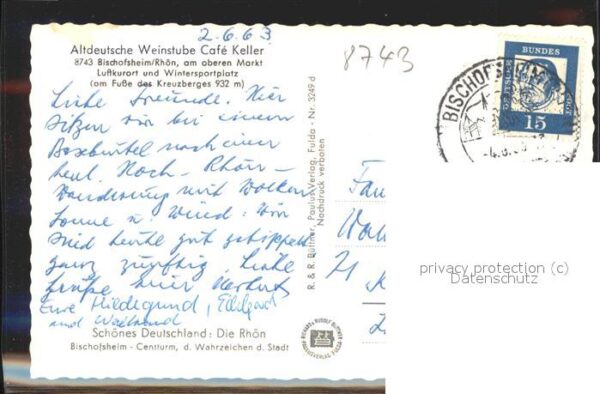 2.6.63
Altdeutsche Weinstube Café Keller
8743 Bischofsheim/Rhön, am oberen Markt
Luftkurort und Wintersportplatz
(am Fuße des Kreuzberges 932 m)
8743
Liebe Freunde. Hier
sitzen wir bei einem
Boxbeutel nach einer
Hoch-Rhön-
Wanderung mit Wolken
Sonne u. Wind. Wir
sind heute gut
ganz zünftig. Liebe
Grüße
Eure Hildegund,
und
Schönes Deutschland: Die Rhön
Bischofsheim - Centturm, d. Wahrzeichen d. Stadt
R. & R. Büttner, Paulus-Verlag, Fulda - Nr. 3249 d
Nachdruck verboten
DEUTSCHE BUNDESPOST
15
BISCHOFSHEIM
privacy protection (c)
Datenschutz